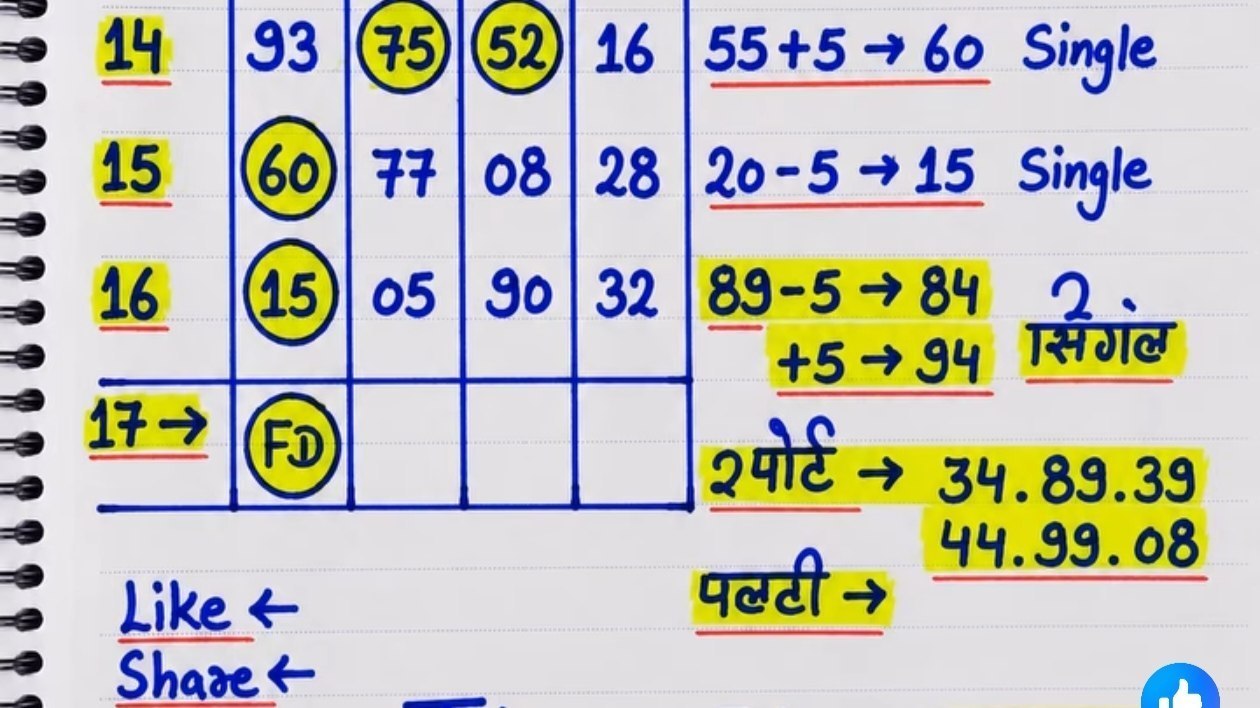 14 93 75 52 16 55+5 → 60 Single
15 60 77 08 28 20-5 → 15 Single
16 15 05 90 32 89-5 → 84
+5 → 94 2 सिंगल
17 → FD
2 पोर्ट → 34.89.39
44.99.08
पलटी →
Like ←
Share ←